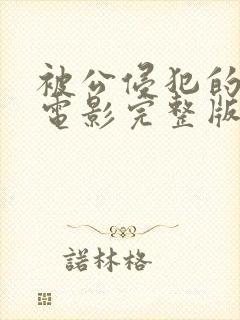 被公侵犯的
電影完整版
諾林格